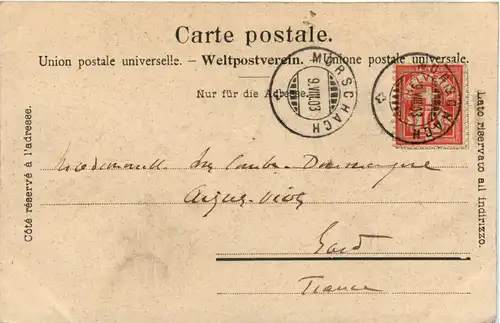 Carte postale.
Union postale universelle. – Weltpostverein. – Unione postale universale.
Nur für die Adresse.
MORSCHACH
9.VIII.03
MORSCHACH
9.VIII.03
Côté réservé à l'adresse.
Lato riservato all indirizzo.
Mademoiselle
Aigues-Vives
Gard
France